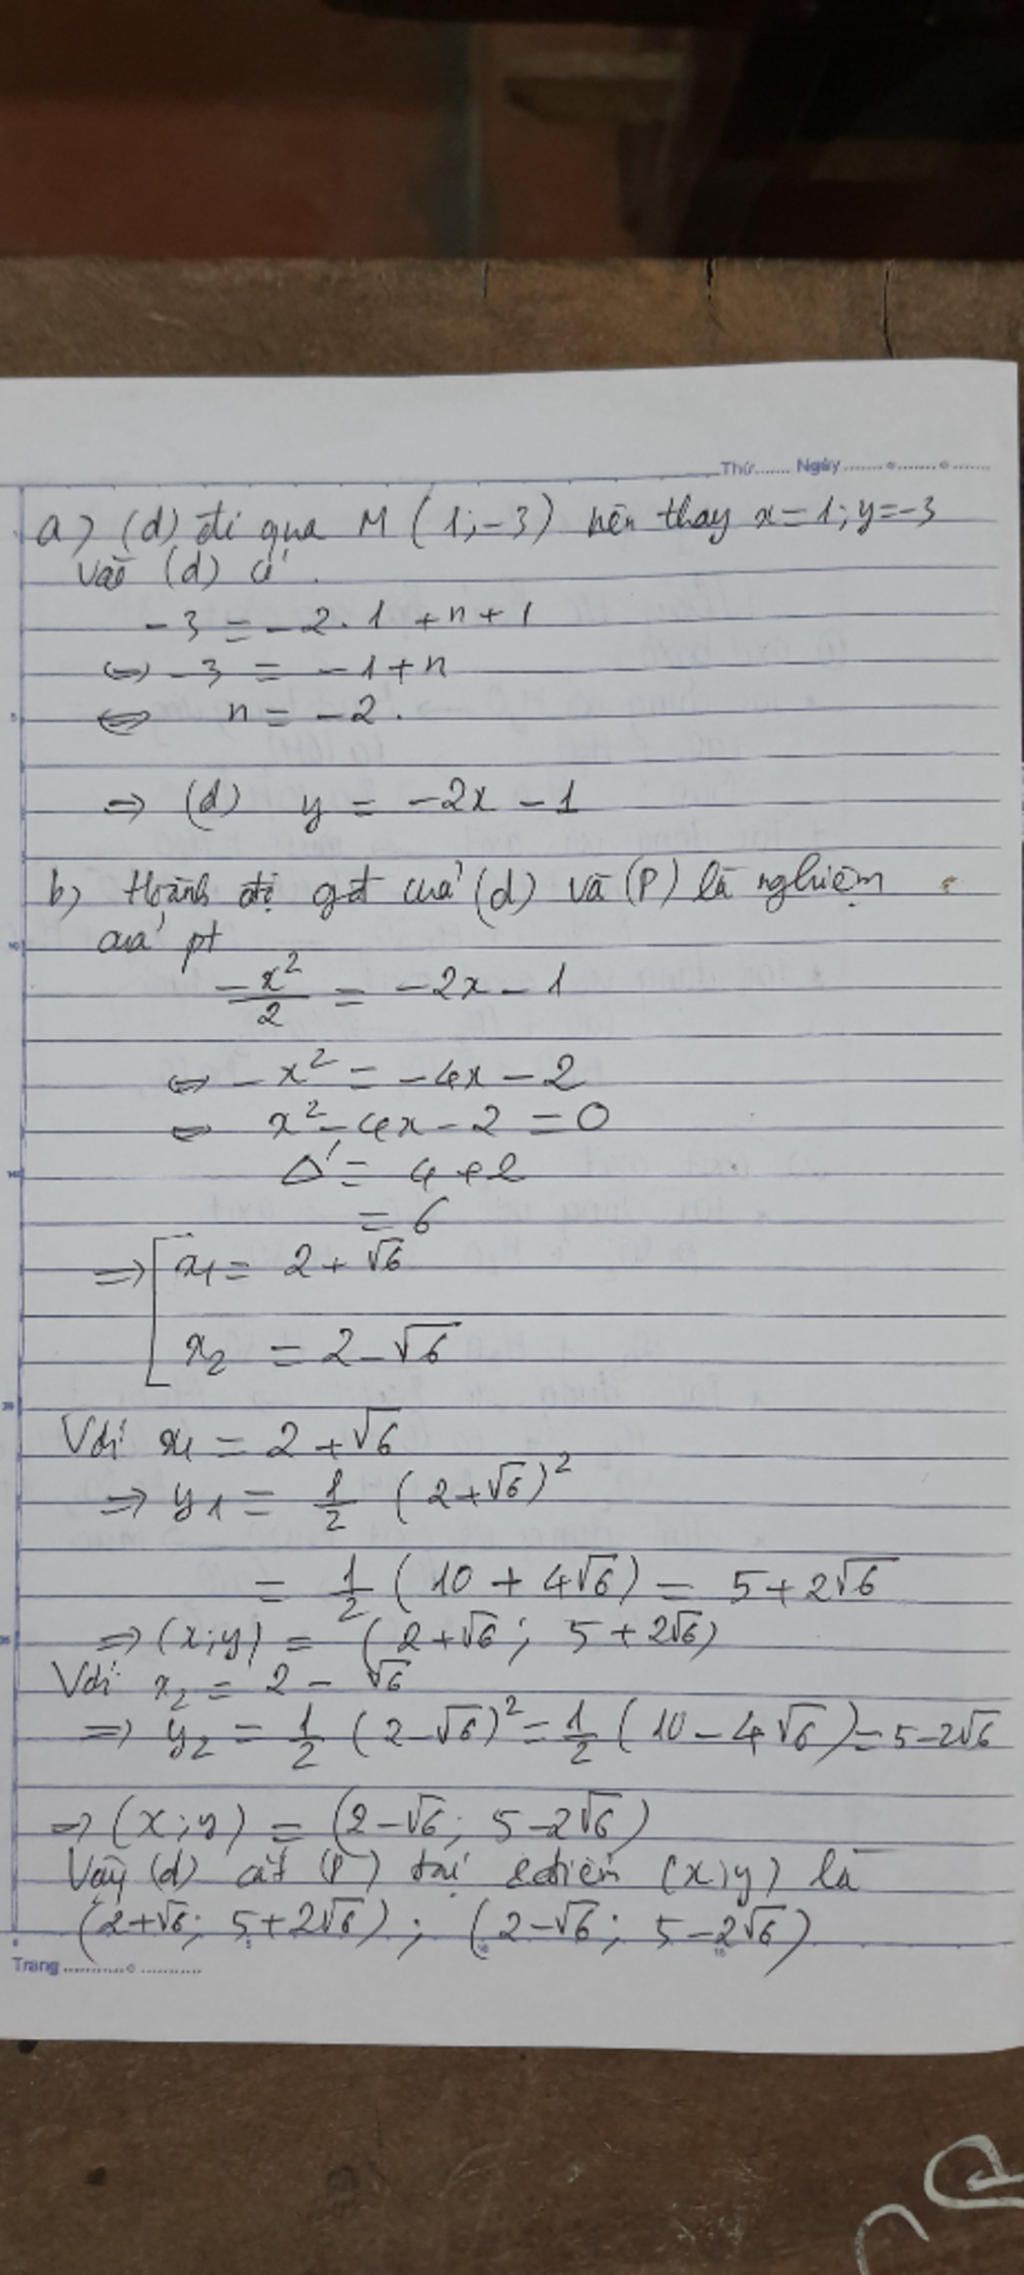 Thứ....... Ngày
a) (d) đi qua M (1;-3) nên thay x=1; y=-3
vào (d) có
-3 = -2.1 + n + 1
⇔ -3 = -1 + n
⇔ n = -2.
⇒ (d) y = -2x - 1
b) Hoành độ gđ của (d) và (P) là nghiệm
của pt
-x²/2 = -2x - 1
⇔ -x² = -4x - 2
⇔ x² - 4x - 2 = 0
Δ' = 4 + 2
= 6
⇒ [ x1 = 2 + √6
x2 = 2 - √6
Với x1 = 2 + √6
⇒ y1 = 1/2 (2+√6)²
= 1/2 (10 + 4√6) = 5 + 2√6
⇒ (x;y) = (2+√6; 5+2√6)
Với x2 = 2 - √6
⇒ y2 = 1/2 (2-√6)² = 1/2 (10 - 4√6) = 5-2√6
⇒ (x;y) = (2-√6; 5-2√6)
Vậy (d) cắt (P) tại 2 điểm (x;y) là
(2+√6; 5+2√6); (2-√6; 5-2√6)
Trang